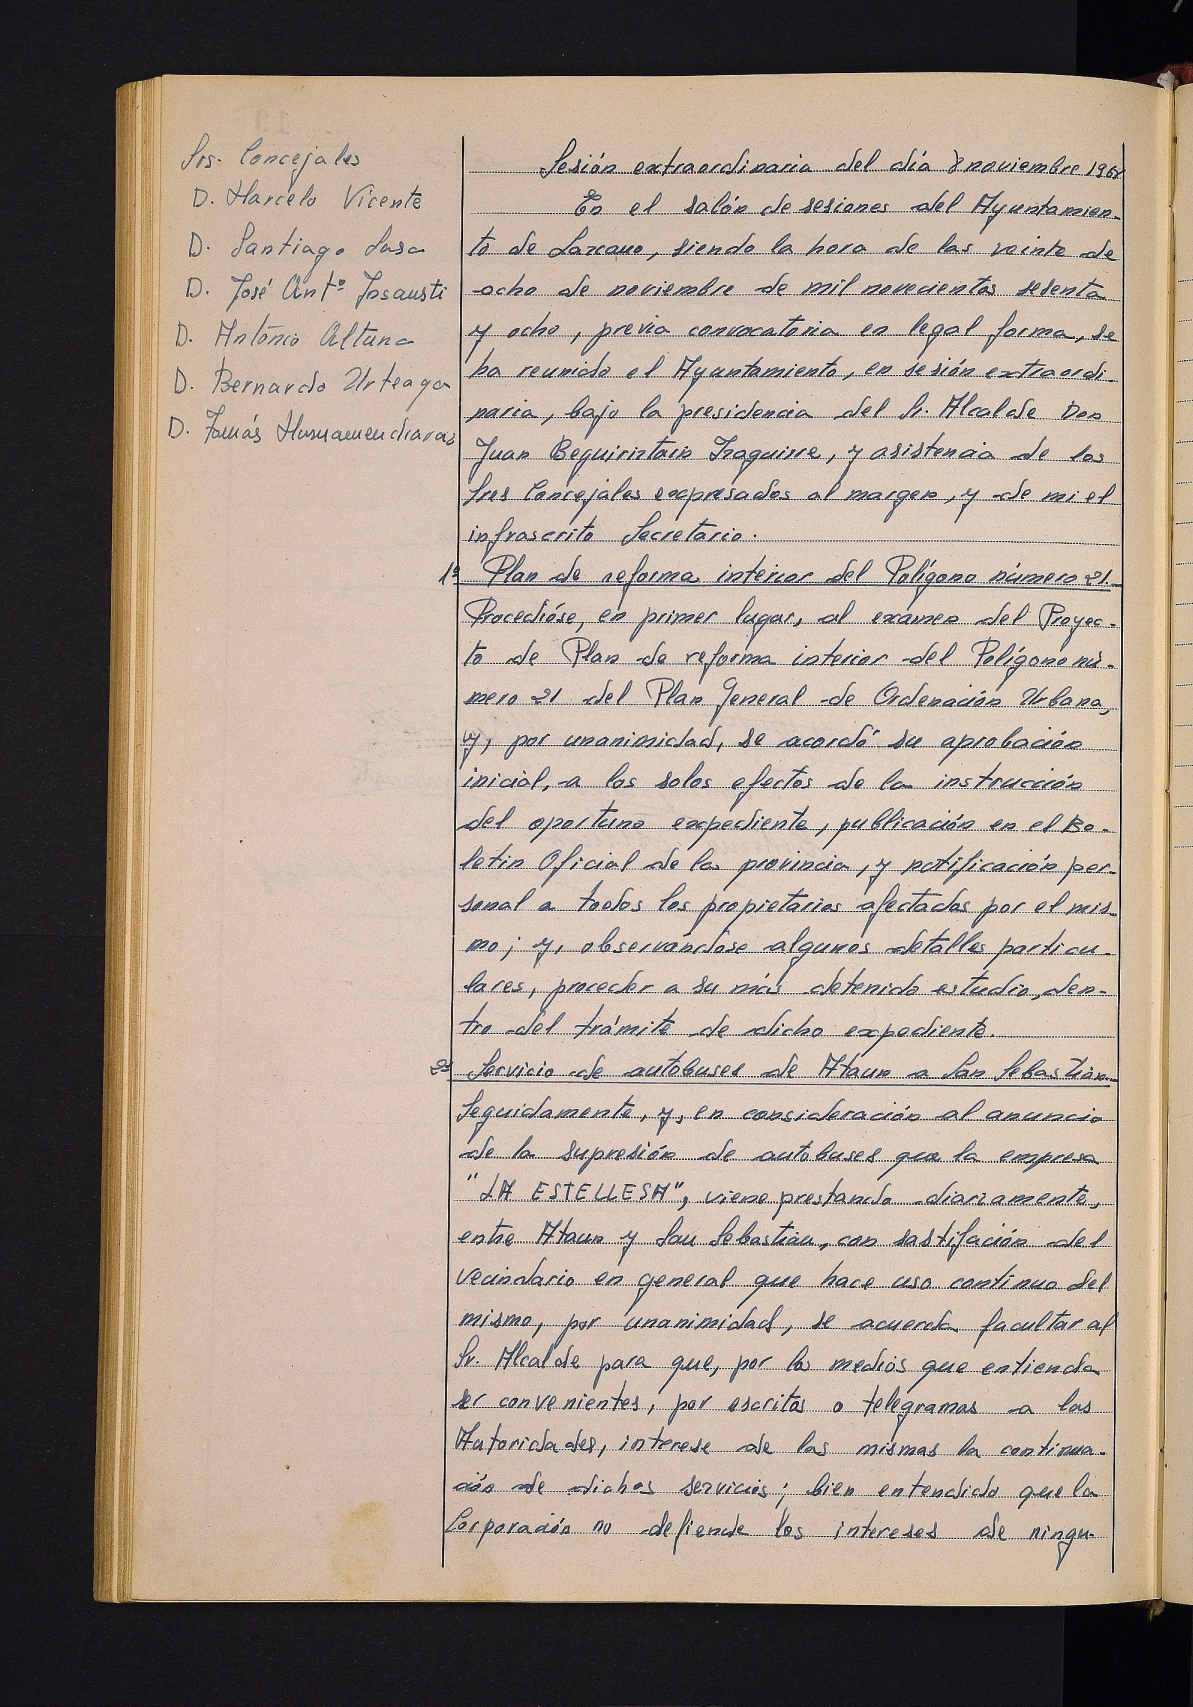 Srs. Concejales
D. Marcelo Vicente
D. Santiago Sasa
D. José Antº Insausti
D. Antonio Altuna
D. Bernardo Urteaga
D. Tomás
Sesión extraordinaria del día 8 noviembre 1968
En el salón de sesiones del Ayuntamien-
to de Lazcano, siendo la hora de las veinte de
ocho de noviembre de mil novecientos sesenta
y ocho, previa convocatoria en legal forma, se
ha reunido el Ayuntamiento, en sesión extraordi-
naria, bajo la presidencia del Sr. Alcalde Don
Juan Beguiristain Iraguirre, y asistencia de los
Sres Concejales expresados al margen, y de mi el
infrascrito Secretario.
1º Plan de reforma interior del Polígono número 21.
Procedióse, en primer lugar, al examen del Proyec-
to de Plan de reforma interior del Polígono nú-
mero 21 del Plan General de Ordenación Urbana,
y, por unanimidad, se acordó su aprobación
inicial, a los solos efectos de la instrucción
del oportuno expediente, publicación en el Bo-
letin Oficial de la provincia, y notificación per-
sonal a todos los propietarios afectados por el mis-
mo; y, observándose algunos detalles particu-
lares, proceder a su más detenido estudio, den-
tro del trámite de dicho expediente.
2º Servicio de autobuses de Ataun a San Sebastián.
Seguidamente, y, en consideración al anuncio
de la supresión de autobuses que la empresa
"LA ESTELLESA", viene prestando diariamente,
entre Ataun y San Sebastián, con sastifación del
vecindario en general que hace uso contínuo del
mismo, por unanimidad, se acuerda facultar al
Sr. Alcalde para que, por los medios que entienda
ser convenientes, por escritos o telegramas a las
Autoridades, interese de las mismas la continua-
ción de dichos servicios; bien entendido que la
Corporación no defiende los intereses de ningu-